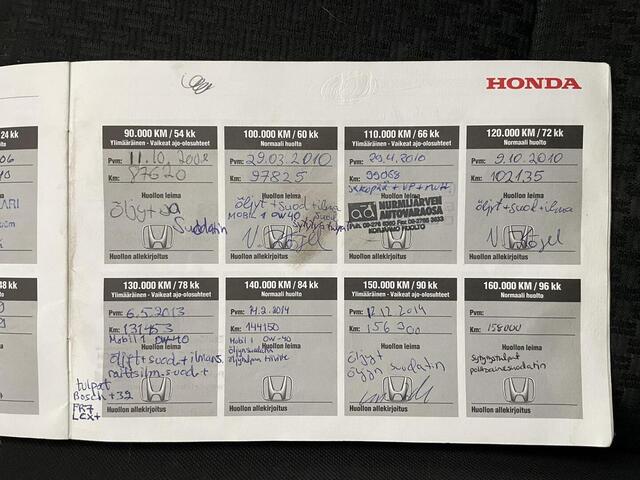 HONDA
24 kk
90.000 KM / 54 kk
Ylimääräinen - Vaikeat ajo-olosuhteet
Pvm: 11.10.2008
Km: 87620
Huollon leima
öljyt ja
Suodatin
Huollon allekirjoitus
100.000 KM / 60 kk
Normaali huolto
Pvm: 29.03.2010
Km: 97825
Huollon leima
öljyt + suod + ilma
MOBIL 1 0W40
Huollon allekirjoitus
110.000 KM / 66 kk
Ylimääräinen - Vaikeat ajo-olosuhteet
Pvm:
Km: 99068
ad NURMIJÄRVEN
AUTOVARAOSA
KORJAAMO HUOLTO
Huollon allekirjoitus
120.000 KM / 72 kk
Normaali huolto
Pvm: 9.10.2010
Km: 102135
Huollon leima
öljyt + suod + ilma
Huollon allekirjoitus
48 kk
130.000 KM / 78 kk
Ylimääräinen - Vaikeat ajo-olosuhteet
Pvm: 6.5.2013
Km: 131453
Mobil 1 0W-40
Huollon leima
öljyt + suod + ilmans.
raitisilm.suod +
tulpat
Bosch +32
FR7
LCX+
Huollon allekirjoitus
140.000 KM / 84 kk
Normaali huolto
Pvm: 14.2.2014
Km: 144150
Mobil 1 0W-40
Huollon leima
öljynsuodatin
öljytulpan tiiviste
Huollon allekirjoitus
150.000 KM / 90 kk
Ylimääräinen - Vaikeat ajo-olosuhteet
Pvm: 12.12.2014
Km: 156 300
Huollon leima
öljyt
öljyn suodatin
Huollon allekirjoitus
160.000 KM / 96 kk
Normaali huolto
Pvm:
Km: 158000
Huollon leima
sytytystulpat
polttoainesuodatin
Huollon allekirjoitus